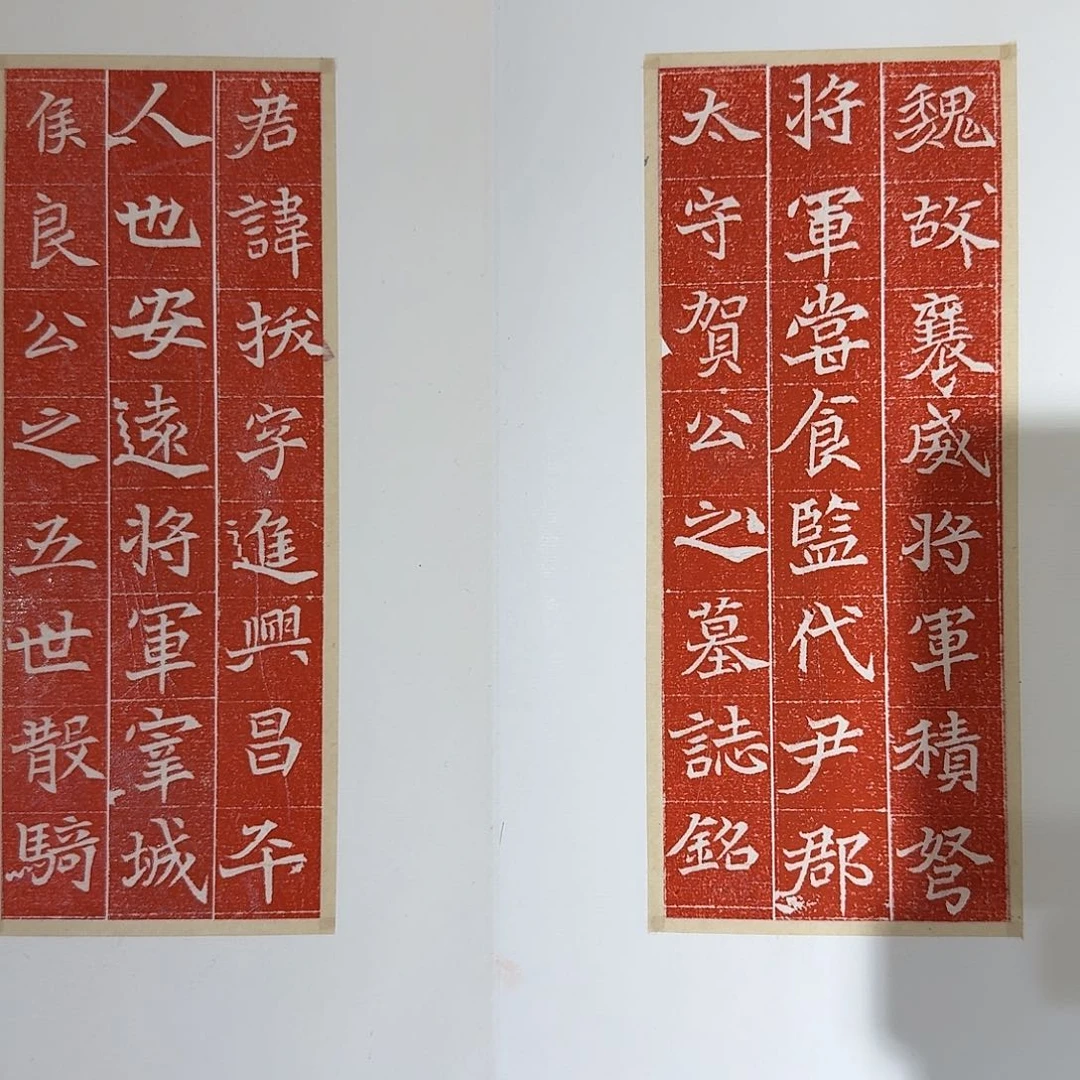 魏故襄威将軍積弩
将軍甞食監代尹郡
太守賀公之墓誌銘
君諱拔字進興昌平
人也安遠将軍宰城
侯良公之五世散騎